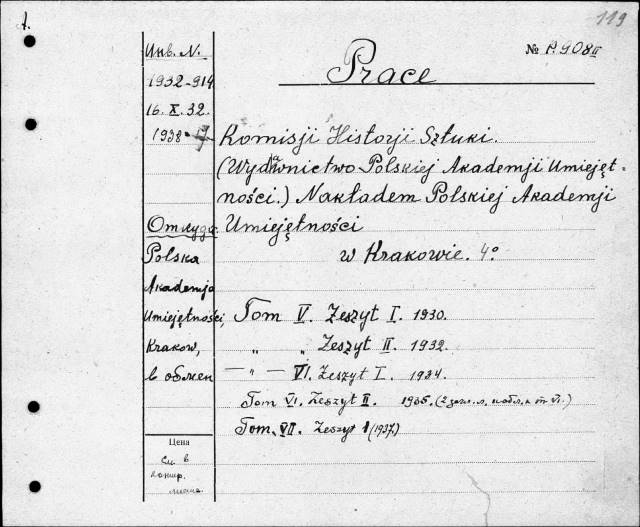 119
Инв. N.
№ P.908 II
1932-914
Prace
16. X. 32.
1938-
Komisji Historji Sztuki.
(Wydawnictwo Polskiej Akademji Umiejęt-
ności.) Nakładem Polskiej Akademji
Umiejętności
w Krakowie. 4°
Откуда
Polska
Akademja
Umiejętności,
Krakow,
в обмен
Tom V. Zeszyt I. 1930.
" " Zeszyt II. 1932.
— " — VI. Zeszyt I. 1934.
Tom VI. Zeszyt II. 1935. (2 загл. л. и обл. к т. VI.)
Tom. VII. Zeszyt 1 (1937)
Цена
См в